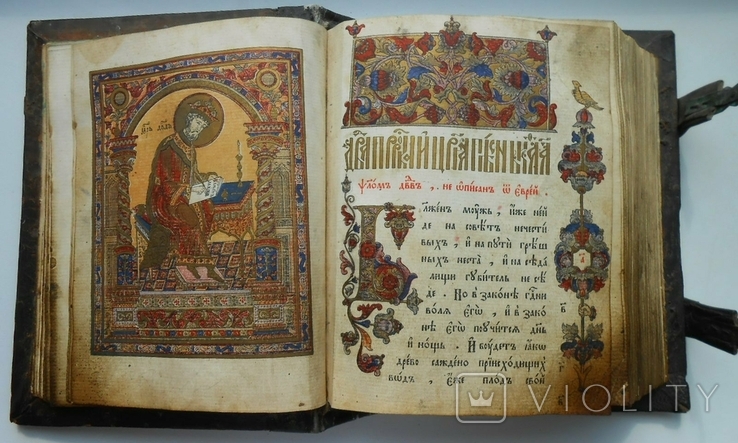 ѱаломъ дв҃дъ, не ѡписан ѿ еврей
Блаженъ моужь, иже не и
де на совѣтъ нечести
выхъ, и на пути грѣш
ныхъ не ста, и на сѣда
лищи губитель не сѣ
де. Но в законѣ гд҃ни
воля его, и в зако
нѣ его поучится дн҃ь
и нощь. И будетъ ꙗко
древо саждено при исходищих
водъ, еже плодъ свой
VIOLITY